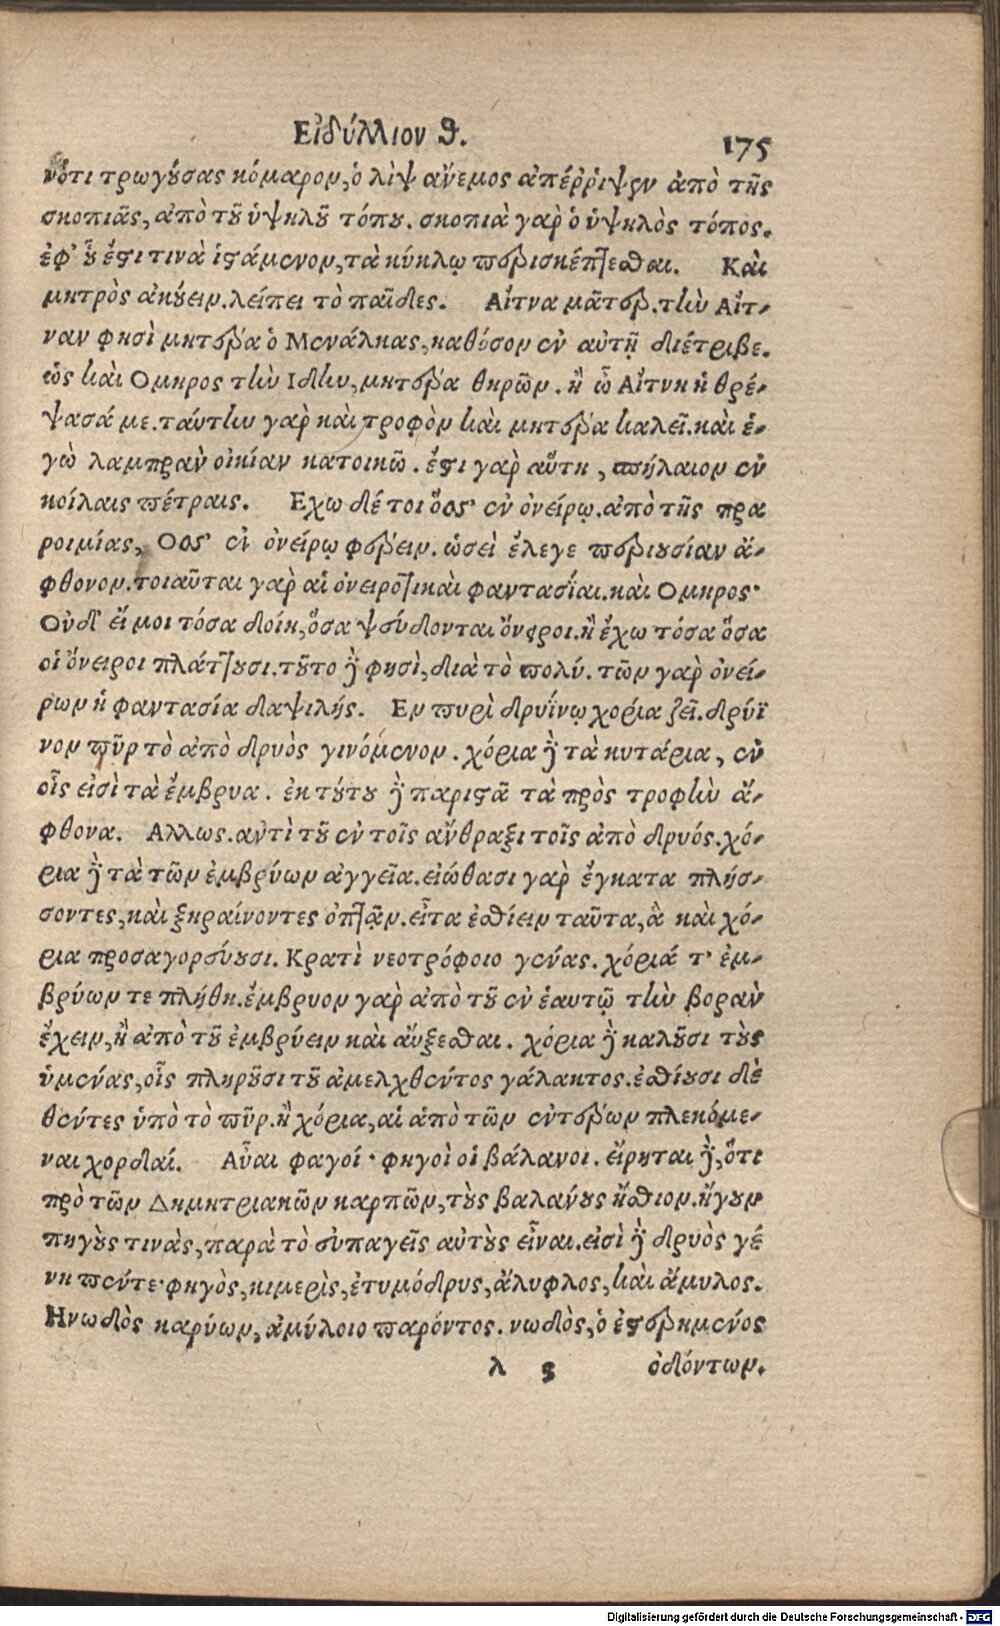 Εἰδύλλιον θ.
175
νότι τρωγούσας κόμαρον, ὁ λὶψ ἄνεμος ἀπέῤῥιψεν ἀπὸ τῆς
σκοπιᾶς, ἀπὸ τοῦ ὑψηλοῦ τόπου. σκοπιὰ γὰρ ὁ ὑψηλὸς τόπος.
ἐφ' οὗ ἔστι τινὰ ἱστάμενον, τὰ κύκλῳ περισκέπτεσθαι. Καὶ
μητρὸς ἀκούειν. λείπει τὸ παῖδες. Αἴτνα μᾶτερ. τὴν Αἴτ-
ναν φησὶ μητέρα ὁ Μενάλκας, καθόσον ἐν αὐτῇ διέτριβε.
ὡς καὶ Ομηρος τὴν Ιδην, μητέρα θηρῶν. ἢ ὦ Αἴτνη ἡ θρέ-
ψασά με. ταύτην γὰρ καὶ τροφὸν καὶ μητέρα καλεῖ. καὶ ἐ-
γὼ λαμπρὰν οἰκίαν κατοικῶ. ἔστι γὰρ αὕτη, σπήλαιον ἐν
κοίλαις πέτραις. Εχω δέ τοι ὅσσ' ἐν ὀνείρῳ. ἀπὸ τῆς πα
ροιμίας, Οσσ' ἐν ὀνείρῳ φέρειν. ὡσεὶ ἔλεγε περιουσίαν ἄ-
φθονον. τοιαῦται γὰρ αἱ ὀνειροτικαὶ φαντασίαι. καὶ Ομηρος·
Οὐδ' εἴ μοι τόσα δοίη, ὅσα ψεύδονται ὄνεροι. ἢ ἔχω τόσα ὅσα
οἱ ὄνειροι πλάττουσι. τοῦτο δὲ φησὶ, διὰ τὸ πολύ. τῶν γὰρ ὀνεί-
ρων ἡ φαντασία δαψιλής. Εν πυρὶ δρυΐνῳ χορία ζεῖ. δρύϊ
νον πῦρ τὸ ἀπὸ δρυὸς γινόμενον. χόρια δὲ τὰ κυτάρια, ἐν
οἷς εἰσὶ τὰ ἔμβρυα. ἐκ τούτου δὲ παριστᾶ τὰ πρὸς τροφὴν ἄ-
φθονα. Αλλως. ἀντὶ τοῦ ἐν τοῖς ἄνθραξι τοῖς ἀπὸ δρυός. χό-
ρια δὲ τὰ τῶν ἐμβρύων ἀγγεῖα. εἰώθασι γὰρ ἔγκατα πλήσ-
σοντες, καὶ ξηραίνοντες ὀπτᾷν. εἶτα ἐσθίειν ταῦτα, ἃ καὶ χό-
ρια προσαγορεύουσι. Κρατὶ νεοτρόφοιο γενύας. χόριά τ' ἐμ-
βρύων τε πλήθη. ἔμβρυον γὰρ ἀπὸ τοῦ ἐν ἑαυτῷ τὴν βορὰν
ἔχειν, ἢ ἀπὸ τοῦ ἐμβρύειν καὶ αὔξεσθαι. χόρια δὲ καλοῦσι τοὺς
ὑμένας, οἷς πληροῦσι τοῦ ἀμελχθέντος γάλακτος. ἐσθίουσι δὲ
θέντες ὑπὸ τὸ πῦρ. ἢ χόρια, αἱ ἀπὸ τῶν ἐντέρων πλεκόμε-
ναι χορδαί. Αὖαι φαγοί· φηγοὶ οἱ βάλανοι. εἴρηται δὲ, ὅτι
πρὸ τῶν Δημητριακῶν καρπῶν, τοὺς βαλάνους ἤσθιον. ἤγουν
πηγούς τινὰς, παρὰ τὸ εὐπαγεῖς αὐτοὺς εἶναι. εἰσὶ δὲ δρυὸς γέ
νη πέντε· φηγὸς, κιμερὶς, ἐτυμόδρυς, ἄλυφλος, καὶ ἄμυλος.
Η νωδὸς καρύων, ἀμύλοιο παρόντος. νωδὸς, ὁ ἐστερημένος
λ 5
ὀδόντων.
Digitalisierung gefördert durch die Deutsche Forschungsgemeinschaft - DFG